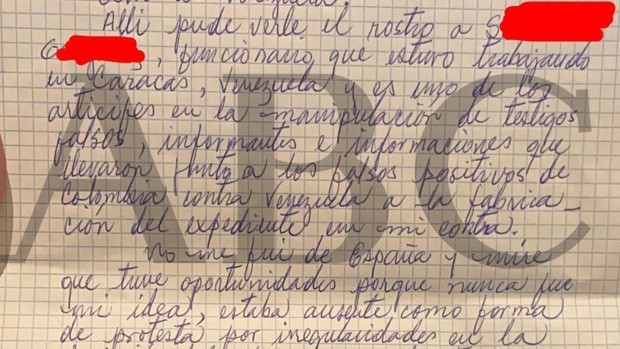 Alli pude verle el rostro a S
G , funcionario que estuvo trabajando
en Caracas, Venezuela y es uno de los
artícipes en la manipulación de testigos
falsos, informantes e informaciones que
llevaron junto a los falsos positivos de
Colombia contra Venezuela a la fabrica-
ción del expediente en mi contra.
No me fui de España y mire
que tuve oportunidades porque nunca fue
mi idea, estaba ausente como forma
de protesta por irregularidades en la
ABC